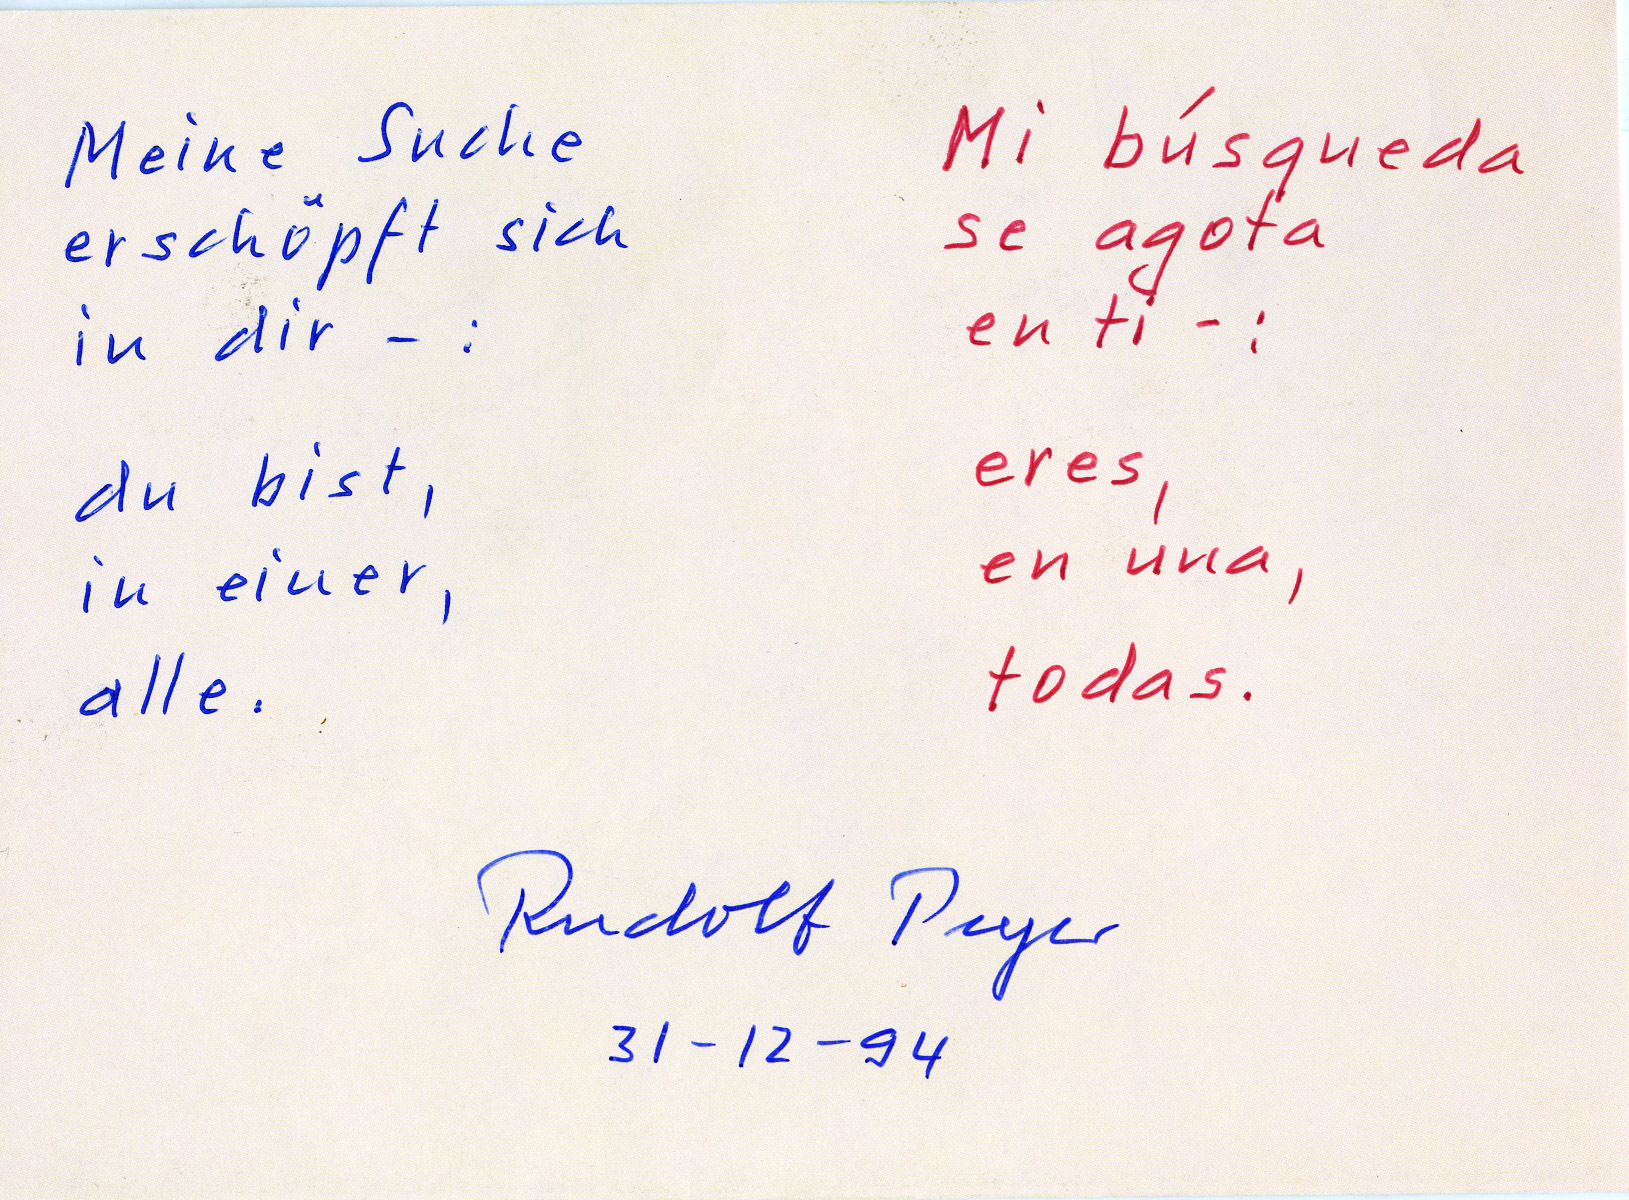 Meine Suche
erschöpft sich
in dir - :
du bist,
in einer,
alle.
Mi búsqueda
se agota
en ti - :
eres,
en una,
todas.
Rudolf Peyer
31-12-94